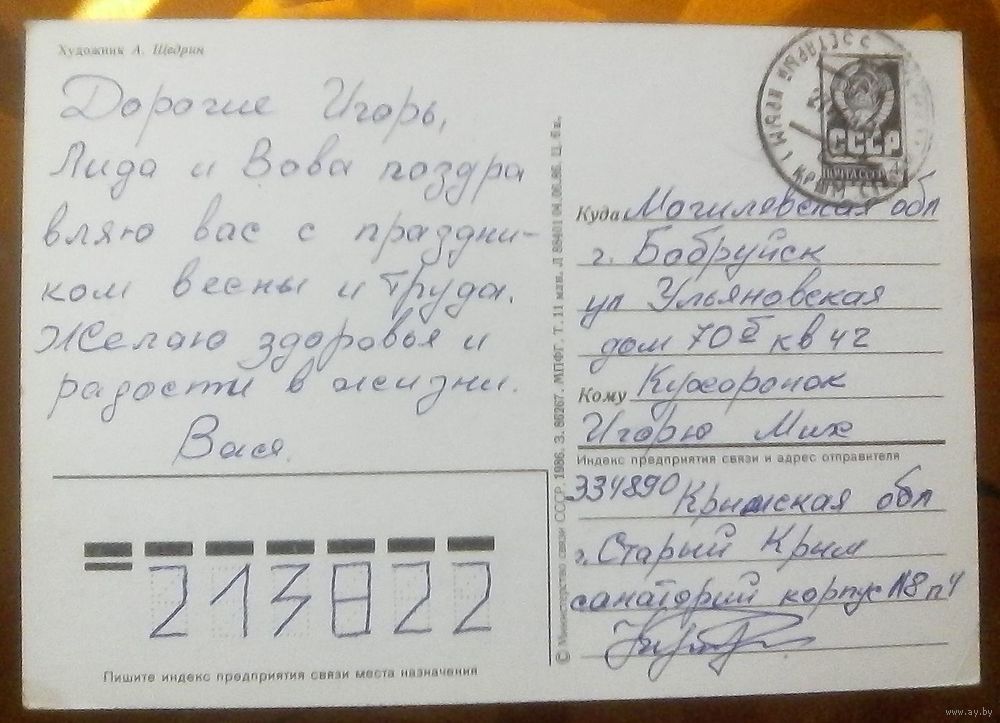 Художник А. Щедрин
Дорогие Игорь,
Лида и Вова поздра
вляю вас с праздни-
ком весны и труда.
Желаю здоровья и
радости в жизни.
Вася.
СССР
ПОЧТА СССР
Куда Могилевская обл
г. Бобруйск
ул Ульяновская
дом 70б кв 42
Кому Кухоронок
Игорю Мих
Индекс предприятия связи и адрес отправителя
334890 Крымская обл
г. Старый Крым
санаторий корпус №8 п 4
213822
Пишите индекс предприятия связи места назначения
© Министерство связи СССР. 1986. З. 86267. МПФГ. Т. 11 млн. Л 88401 04.06.86. Ц. 4 к.
www.ay.by